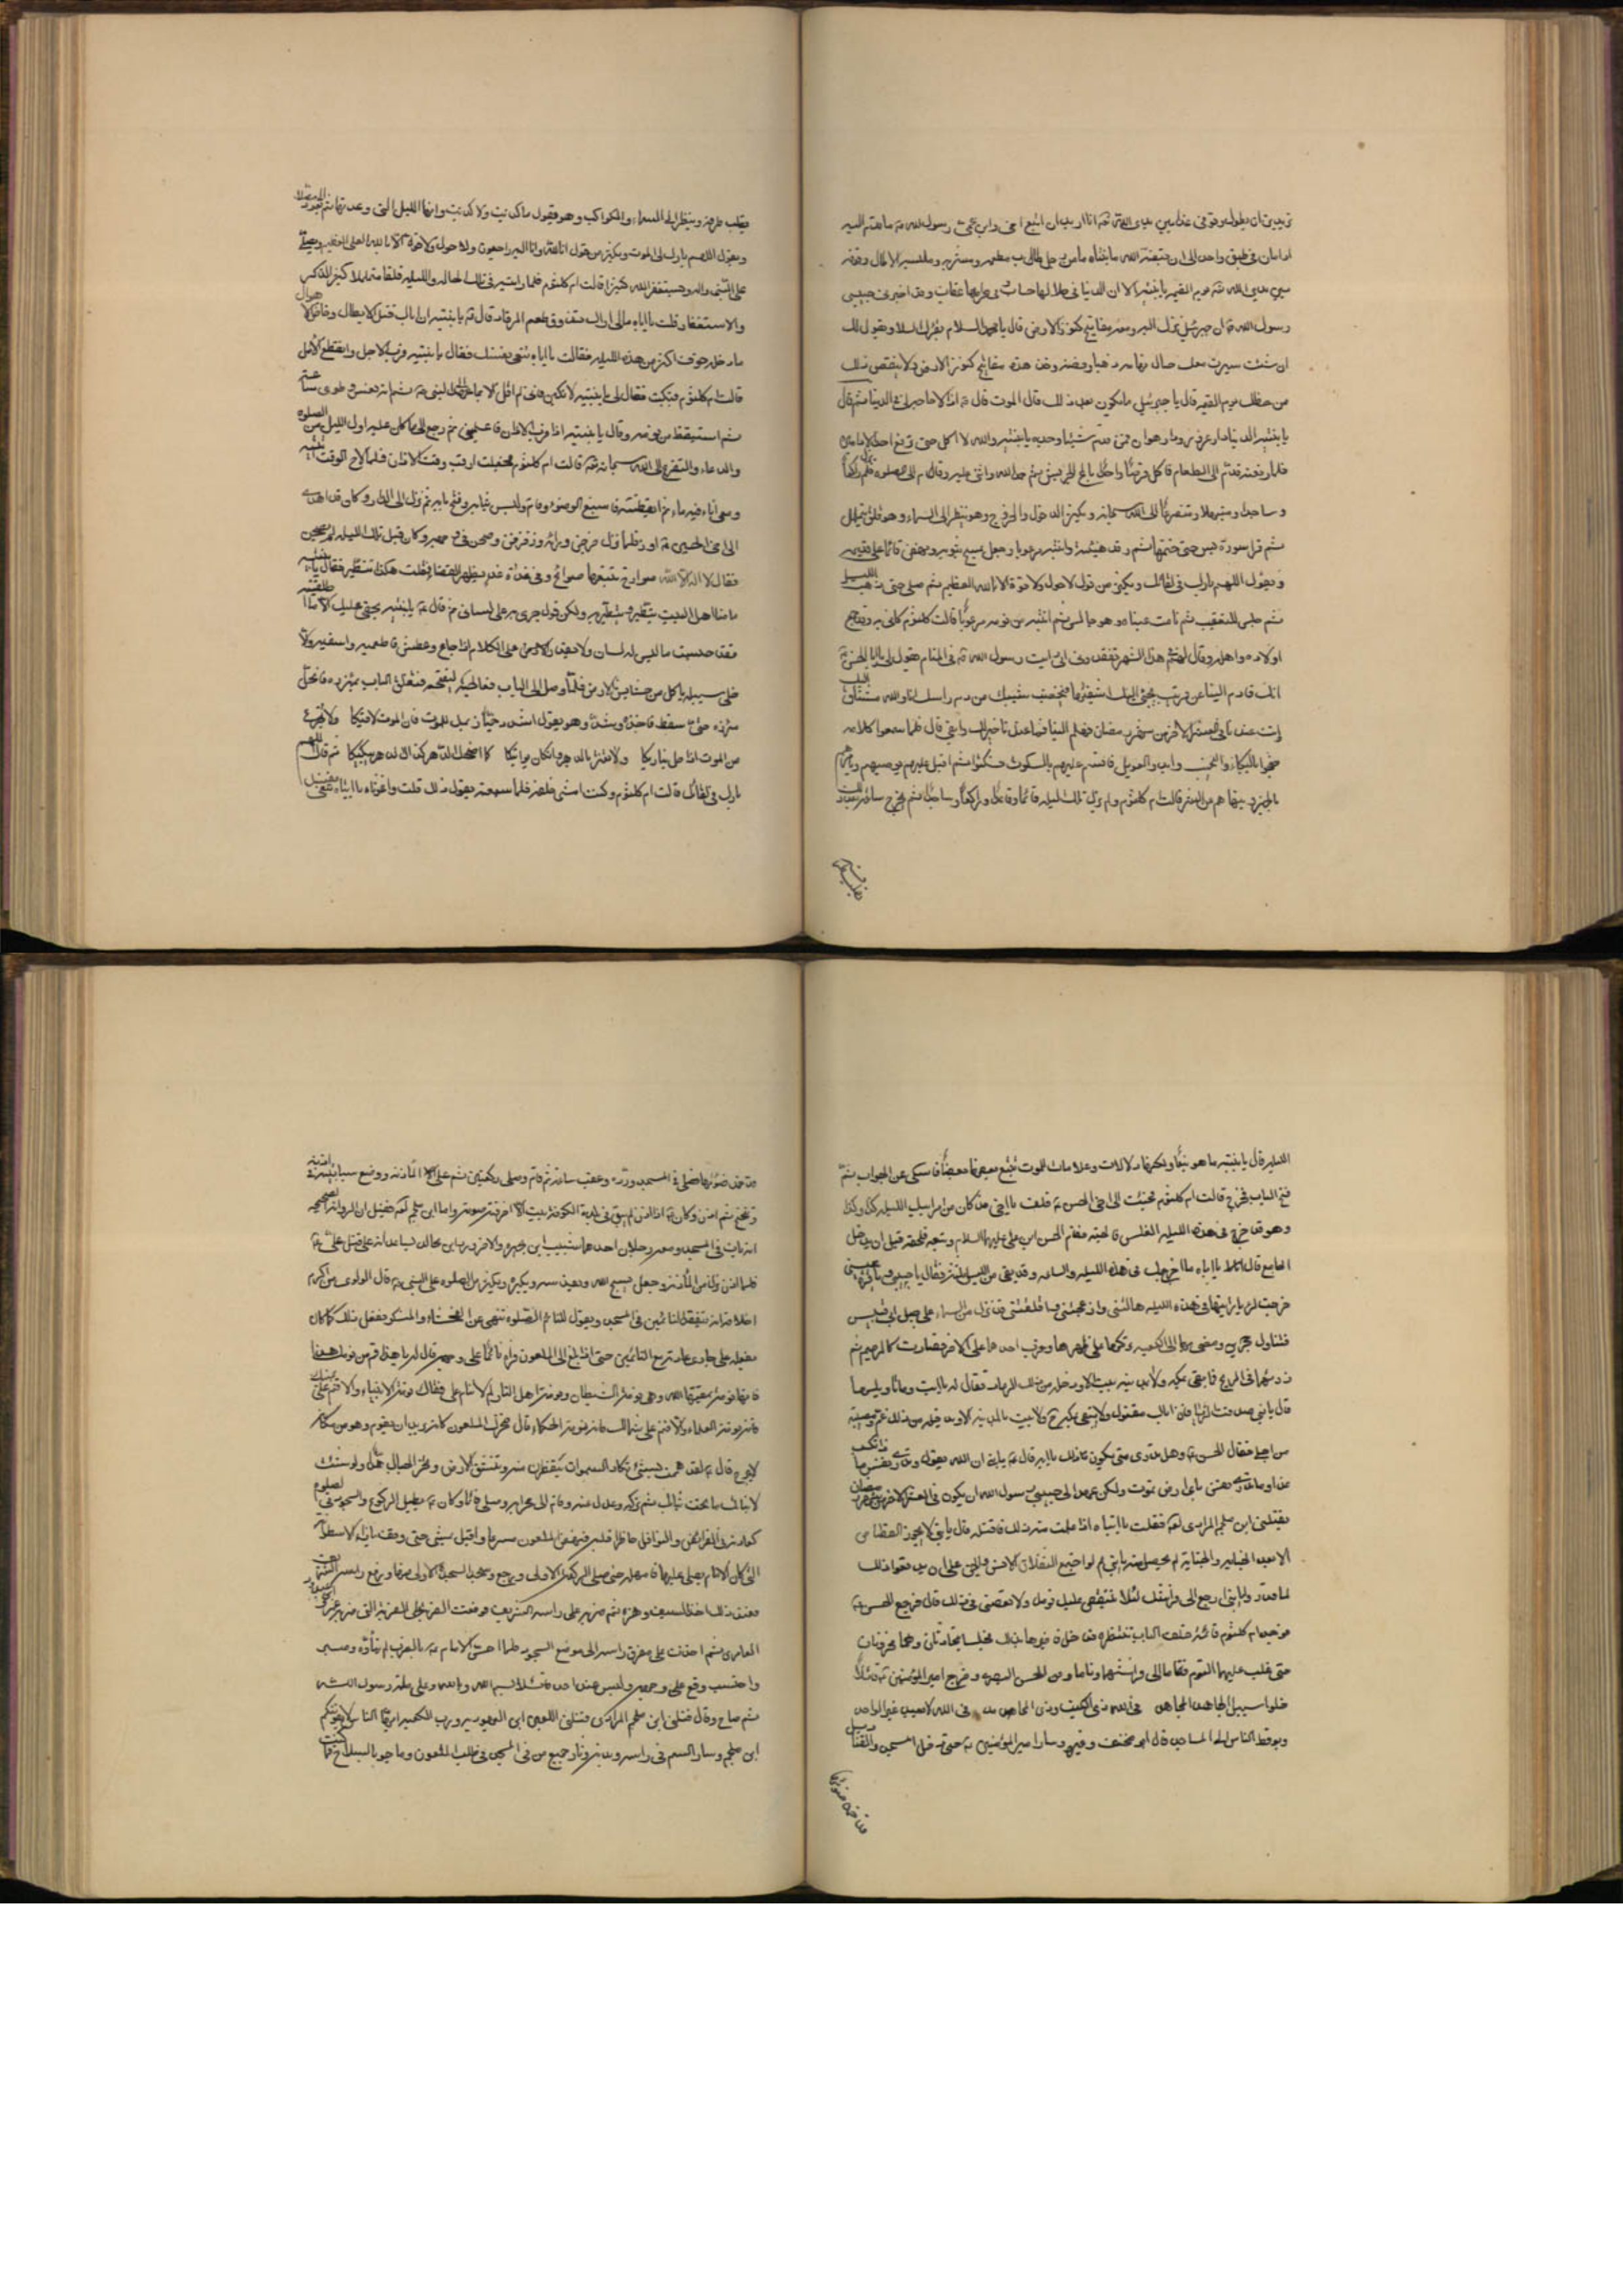 تريدين ان يطول وقوفي غدا بين يدي الله تعـ انا اريد ان اتبع اخي وابن عمي رسول الله صـ ما قدم اليه
ادامان في طبق واحد الى ان قبضه الله يا بنتاه ما من رجل طاب مطعمه ومشربه وملبسه الا طال وقوفه
بين يدي الله تعـ يوم القيمه يا بنتيه الا ان الدنيا في حلالها حساب وفي حرامها عقاب وقد اخبرني حبيبي
رسول الله صـ ان جبرئيل نزل اليه ومعه مفاتيح كنوز الارض قال يا محمد السلام يقرئك السلام ويقول لك
ان شئت سيرت معك جبال تهامه ذهبا وفضه وخذ هذه مفاتيح كنوز الارض ولا ينقص ذلك
من حظك يوم القيمه قال يا جبرئيل ما يكون بعد ذلك قال الموت قال صـ اذا لا حاجه لي في الدنيا ثم قال
يا بنتيه الدنيا دار غرور ودار هوان فمن قدم شيئا وجده يا بنتيه والله لا اكل حتى ترفع احد الادامين
فلما رفعته تقدم الى الطعام فاكل قرصا واحدا بالملح الجريش ثم حمد الله واثنى عليه وقام الى الصلوة فلم يزل راكعا
وساجدا ومبتهلا ومتضرعا الى الله سبحانه ويكثر الدخول والخروج وهو ينظر الى السماء وهو قلق يتململ
ثم قرا سورة يس حتى ختمها ثم رقد هنيئة وانتبه مرعوبا وجعل يمسح بثوبه ونهض قائما على قدميه
ويقول اللهم بارك في لقائك ويكثر من قول لا حول ولا قوة الا بالله العظيم ثم صلى حتى ذهب الليل
ثم جلس للتعقيب ثم نامت عيناه وهو جالس ثم انتبه من نومه مرعوبا قالت كلثوم كاني به وقد جمع
اولاده واهله وقال لهم في هذا الشهر تفقدوني اني رايت رسول الله صـ في المنام يقول لي يا ابا الحسن
انك قادم الينا عن قريب يجئ اليك اشقيها فيخضب شيبك من دم راسك انا والله مشتاق اليك
انت عندنا في العشر الاخر من شهر رمضان فهلم الينا فما عندنا خير لك وابقى قال فلما سمعوا كلامه
ضجوا بالبكاء والنحيب وابدوا العويل فاقسم عليهم بالسكوت فسكتوا ثم اقبل عليهم يوصيهم ويامرهم
بالخير وينهاهم عن الشر قالت ام كلثوم ولم يزل تلك الليله قائما وقاعدا وراكعا وساجدا ثم يخرج ساعة بعد ساعة
يقلب طرفه وينظر الى السماء والكواكب وهو يقول ما كذبت ولا كذبت وانها الليلة التي وعدتها ثم يعود الى مصلاه
ويقول اللهم بارك لي الموت ويكثر من قول انا لله وانا اليه راجعون ولا حول ولا قوة الا بالله العلي العظيم ويصلي
على النبي واله ويستغفر الله كثيرا قالت ام كلثوم فلما رايته في تلك الحاله والليله قلقا متململا كثير الذكر
والاستغفار قلت يا اباه مالي اراك تذوق طعم الرقاد قال عـ يا بنتيه ان اباك قتل الابطال وخاض الاهوال
ما دخله خوف اكثر من هذه الليله فقالت يا اباه تنعى نفسك فقال يا بنتيه قرب الاجل وانقطع الامل
قالت ام كلثوم فبكيت فقال لي يا بنتيه لا تبكين فاني لم اقل الا بما عهد الي النبي صـ ثم انه نعس وطوى ساعة
ثم استيقظ من نومه وقال يا بنتيه اذا قرب الاذان فاعلميني ثم رجع الى ما كان عليه اول الليل من الصلوة
والدعاء والتضرع الى الله سبحانه قالت ام كلثوم فجعلت ارقب وقت الاذان فلما لاح الوقت اتيته
ومعي اناء فيه ماء ثم ايقظته فاسبغ الوضوء وقام ولبس ثيابه وفتح بابه ثم نزل الى الدار وكان قد اهدي
الى اخي الحسين عـ اوز فلما نزل خرجن ورائه ورفرفن وصحن في وجهه وكان قبل تلك الليله لم يصحن
فقال لا اله الا الله صوارخ تتبعها صوائح وفي غداة غد يظهر القضا فقلت هكذا تتطير فقال يا بنتيه
ما منا اهل البيت يتطير ولا يتطير به ولكن قول جرى على لساني ثم قال عـ يا بنتيه بحقي عليك الا ما اطلقتيه
فقد حبست ما ليس له لسان ولا يقدر على الكلام اذا جاع وعطش فاطعميه واسقيه والا
خلي سبيله ياكل من حشايش الارض فلما وصل الى الباب فعالجه ليفتحه فتعلق الباب بميزره فانحل
ميزره حتى سقط فاخذه وشده وهو يقول اشدد حيازيمك للموت فان الموت لاقيكا ولا تجزع
من الموت اذا حل بناديكا ولا تغتر بالدهر وان كان يواتيكا كما اضحكك الدهر كذاك الدهر يبكيكا ثم قال اللهم
بارك في لقائك قالت ام كلثوم وكنت امشي خلفه فلما سمعته يقول ذلك قلت واغوثاه يا ابتاه
الليله قال يا بنتيه ما هو بنعاء ولكنها دلالات وعلامات للموت تتبع بعضها بعضا فامسكي عن الجواب ثم
فتح الباب فخرج قالت ام كلثوم فجئت الى اخي الحسن عـ فقلت يا اخي قد كان من امر ابيك الليله كذا وكذا
وهو قد خرج في هذه الليله الغلس فالحقه فقام الحسن ابن علي عليهما السلام وتبعه فلحقه قبل ان يدخل
الجامع قال يا اباه ما اخرجك في هذه الليله والساعه وقد بقي من الليل ثلثه فقال يا حبيبي ويا قرة عيني
خرجت لرؤيا رايتها في هذه الليله هالتني وازعجتني واقلقتني قد نزل من السماء على جبل ابي قبيس
فتناول حجرين ومضى بهما الى الكعبه وتركهما على ظهرها وضرب احدهما على الاخر فصارت كالرميم ثم
ذرهما في الريح فما بقي بمكه ولا بالمدينه بيت الا ودخله من ذلك الرماد فقال له يا ابت وما تاويلها
قال يا بني ان صدقت الرؤيا فان اباك مقتول ولا يبقى بمكه ولا بيت بالمدينه الا ويدخله من ذلك غم ومصيبة
من اجلي فقال الحسن عـ وهل تدري متى يكون ذلك يا ابه قال عـ يا بني ان الله يقول وما تدري نفس ماذا تكسب
غدا وما تدري نفس باي ارض تموت ولكن عهد الى حبيبي رسول الله ان يكون في العشر الاخر من شهر رمضان
يقتلني ابن ملجم المرادي لعـ فقلت يا ابتاه اذا علمت منه ذلك فاقتله قال يا بني لا يجوز القصاص
الا بعد الجنايه والجنايه لم تحصل منه يا بني لو اجتمع الثقلان الانس والجن على ان يدفعوا ذلك
لما قدروا يا بني ارجع الى فراشك لئلا يتنغص عليك نومك ولا تعصني في ذلك قال فرجع الحسن عـ
فوجد ام كلثوم قائمة خلف الباب تنتظره فدخل فاخبرها بذلك فجلسا يتحادثان وهما محزونان
حتى غلب عليهما النوم فقاما الى فراشهما وناما وخرج امير المؤمنين عـ قائلا
خلوا سبيل الجاهد المجاهد في الله ذي الكتب وذي المجاهد في الله لا يعبد غير الواحد
ويوقظ الناس الى المساجد قال ابو مخنف وغيره وسار امير المؤمنين عـ حتى دخل المسجد والقناديل
قد خمد ضوئها فصلى في المسجد ورده وعقب ساعة ثم قام وصلى ركعتين ثم علا الماذنه ووضع سبابتيه في اذنيه
وتنحنح ثم اذن وكان عـ اذا اذن لم يبق في بلدة الكوفه بيت الا اخترقه صوته واما ابن ملجم
انه بات في المسجد ومعه رجلان احدهما شبيب ابن بجيره والاخر وردان ابن مجالد يساعدانه على قتل علي عـ
فلما اذن ونزل من الماذنه وجعل يسبح الله ويقدسه ويكبره ويكثر من الصلوه على النبي صـ قال الراوي من اكرم
اخلاقه انه يتفقد النائمين في المسجد ويقول للنائم الصلوه تنهى عن الفحشاء والمنكر ففعل ذلك كما كان
يفعله على جاري عادته مع النائمين حتى اذا بلغ الى الملعون فراه نائما على وجهه قال له يا هذا قم من نومك هذا
فانها نومة يمقتها الله وهي نومة الشيطان ونومة اهل النار بل نم على قفاك نومة الانبياء والا فنم على يمينك
فانها نومة العلماء والا فنم على شمالك فانها نومة الحكماء قال فتحرك الملعون كانه يريد ان يقوم وهو من مكانه
لا يبرح قال عـ لقد هممت بشئ تكاد السموات يتفطرن منه وتنشق الارض وتخر الجبال هدا ولو شئت
لانبئتك بما تحت ثيابك ثم تركه وعدل عنه وقام الى محرابه وصلى قائما وكان عـ يطيل الركوع والسجود في الصلوة
كعادته في الفرائض والنوافل حاضرا قلبه فنهض الملعون مسرعا واقبل يمشي حتى وقف بازاء الاسطوانة
التي كان الامام يصلي عليها فامهله حتى صلى الركعة الاولى وركع وسجد السجدة الاولى منها ورفع راسه
فعند ذلك اخذ السيف وهزه ثم ضربه على راسه الشريف فوقعت الضربه على الضربه التي ضربه عمرو
العامري ثم اخذت على مفرق راسه الى موضع السجود فلما احس الامام عـ بالضرب لم يتاوه وصبر
واحتسب وقع على وجهه وليس عنده احد قائلا بسم الله وبالله وعلى ملة رسول الله
ثم صاح وقال قتلني ابن ملجم المرادي قتلني اللعين ابن اليهوديه ورب الكعبه ايها الناس لا يفوتنكم
ابن ملجم وسار السم في راسه وبدنه وثار جميع من في المسجد في طلب الملعون وماجوا بالسلاح فما كنت